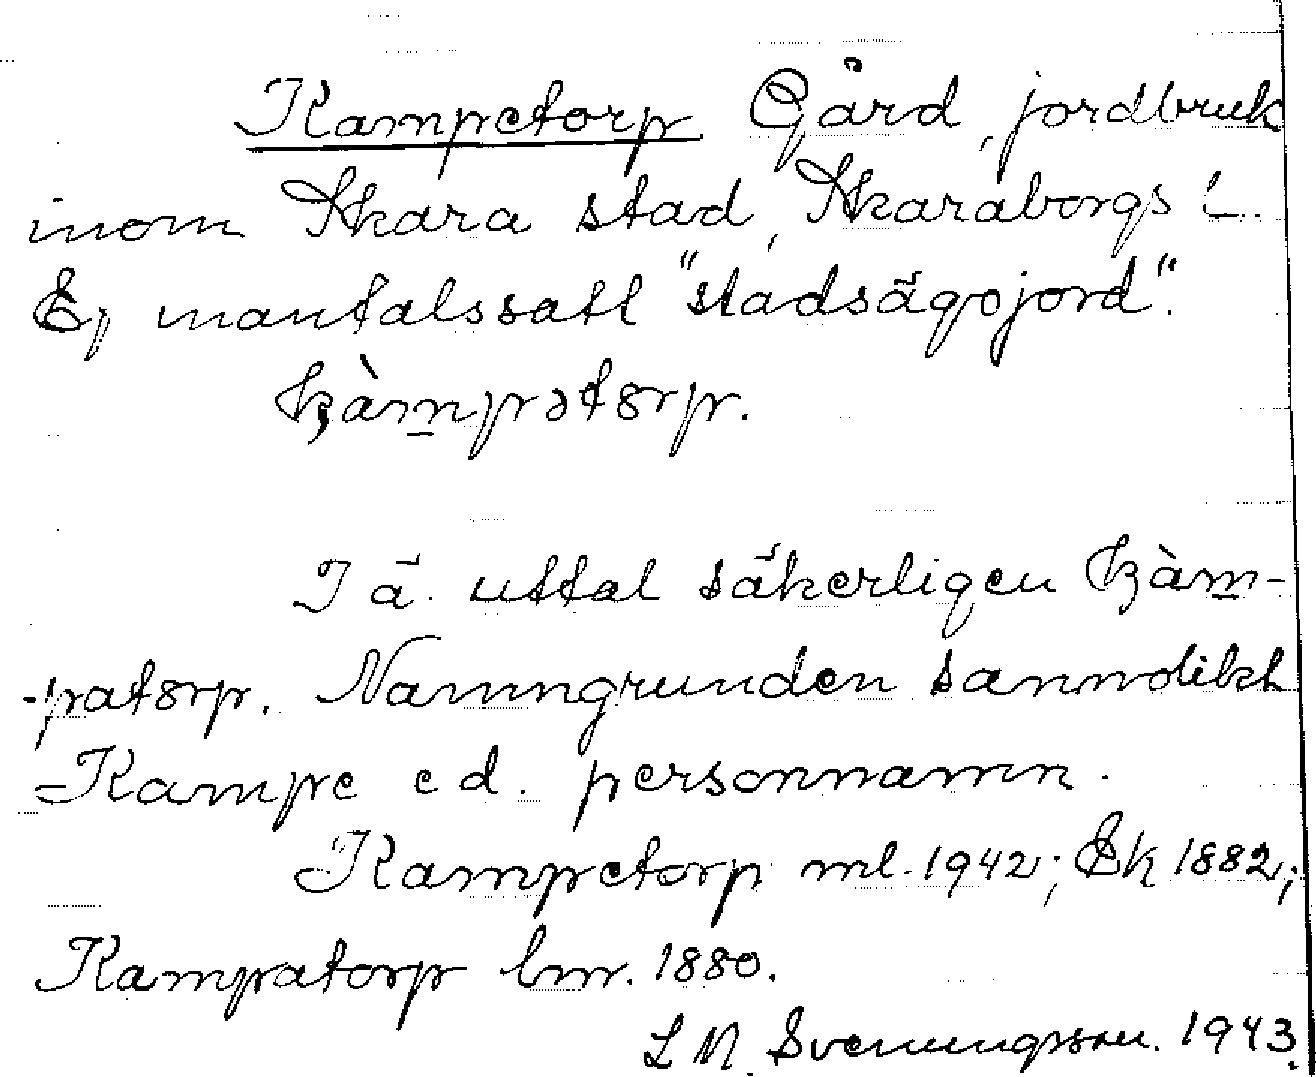 Kampetorp Gård, jordbruk
inom Skara stad, Skaraborgs l.
Ej mantalssatt "stadsägojord".
kàmpətorp.
I ä. uttal säkerligen kàm-
-patorp. Namngrunden sannolikt
Kampe e d. personnamn.
Kampetorp ml. 1942; Ek 1882;
Kampatorp lmr. 1880.
L N. Svenungsson. 1943.